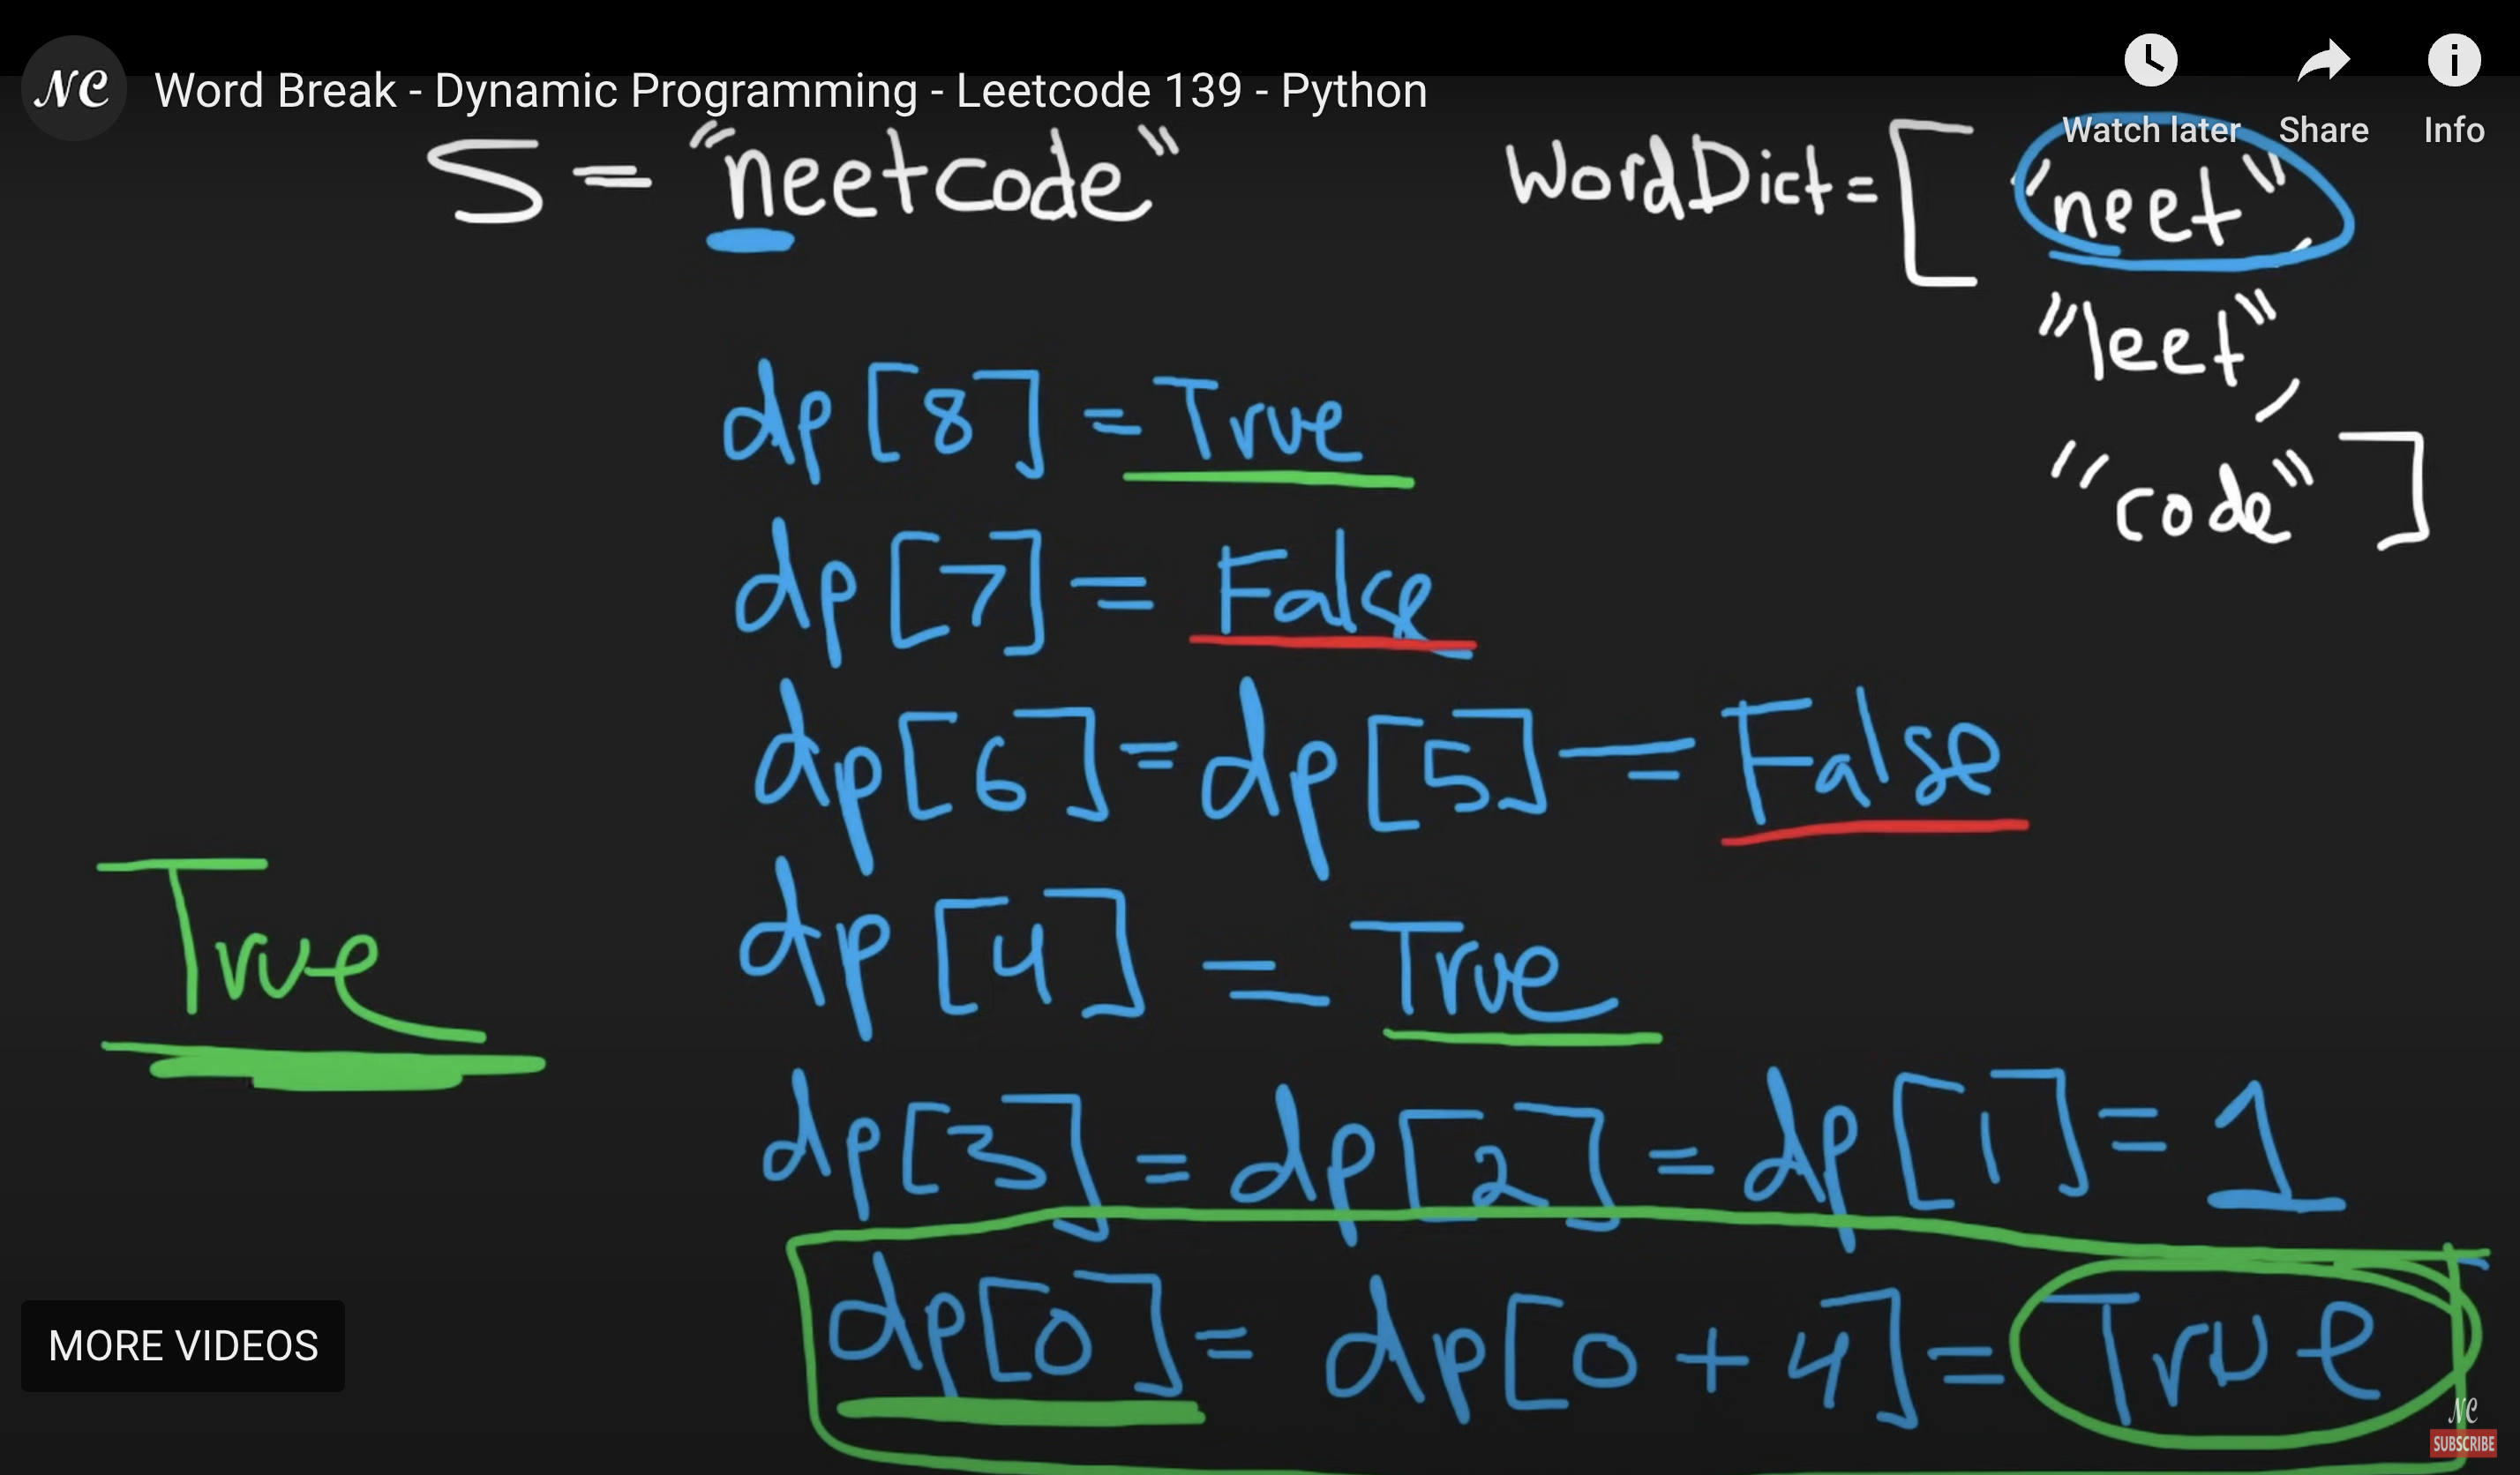 NC Word Break - Dynamic Programming - Leetcode 139 - Python
Watch later Share Info
S = "neetcode"
WordDict = [ "neet",
"leet",
"code" ]
dp[8] = True
dp[7] = False
dp[6] = dp[5] = False
dp[4] = True
True
dp[3] = dp[2] = dp[1] = 1
dp[0] = dp[0+4] = True
MORE VIDEOS
NC
SUBSCRIBE